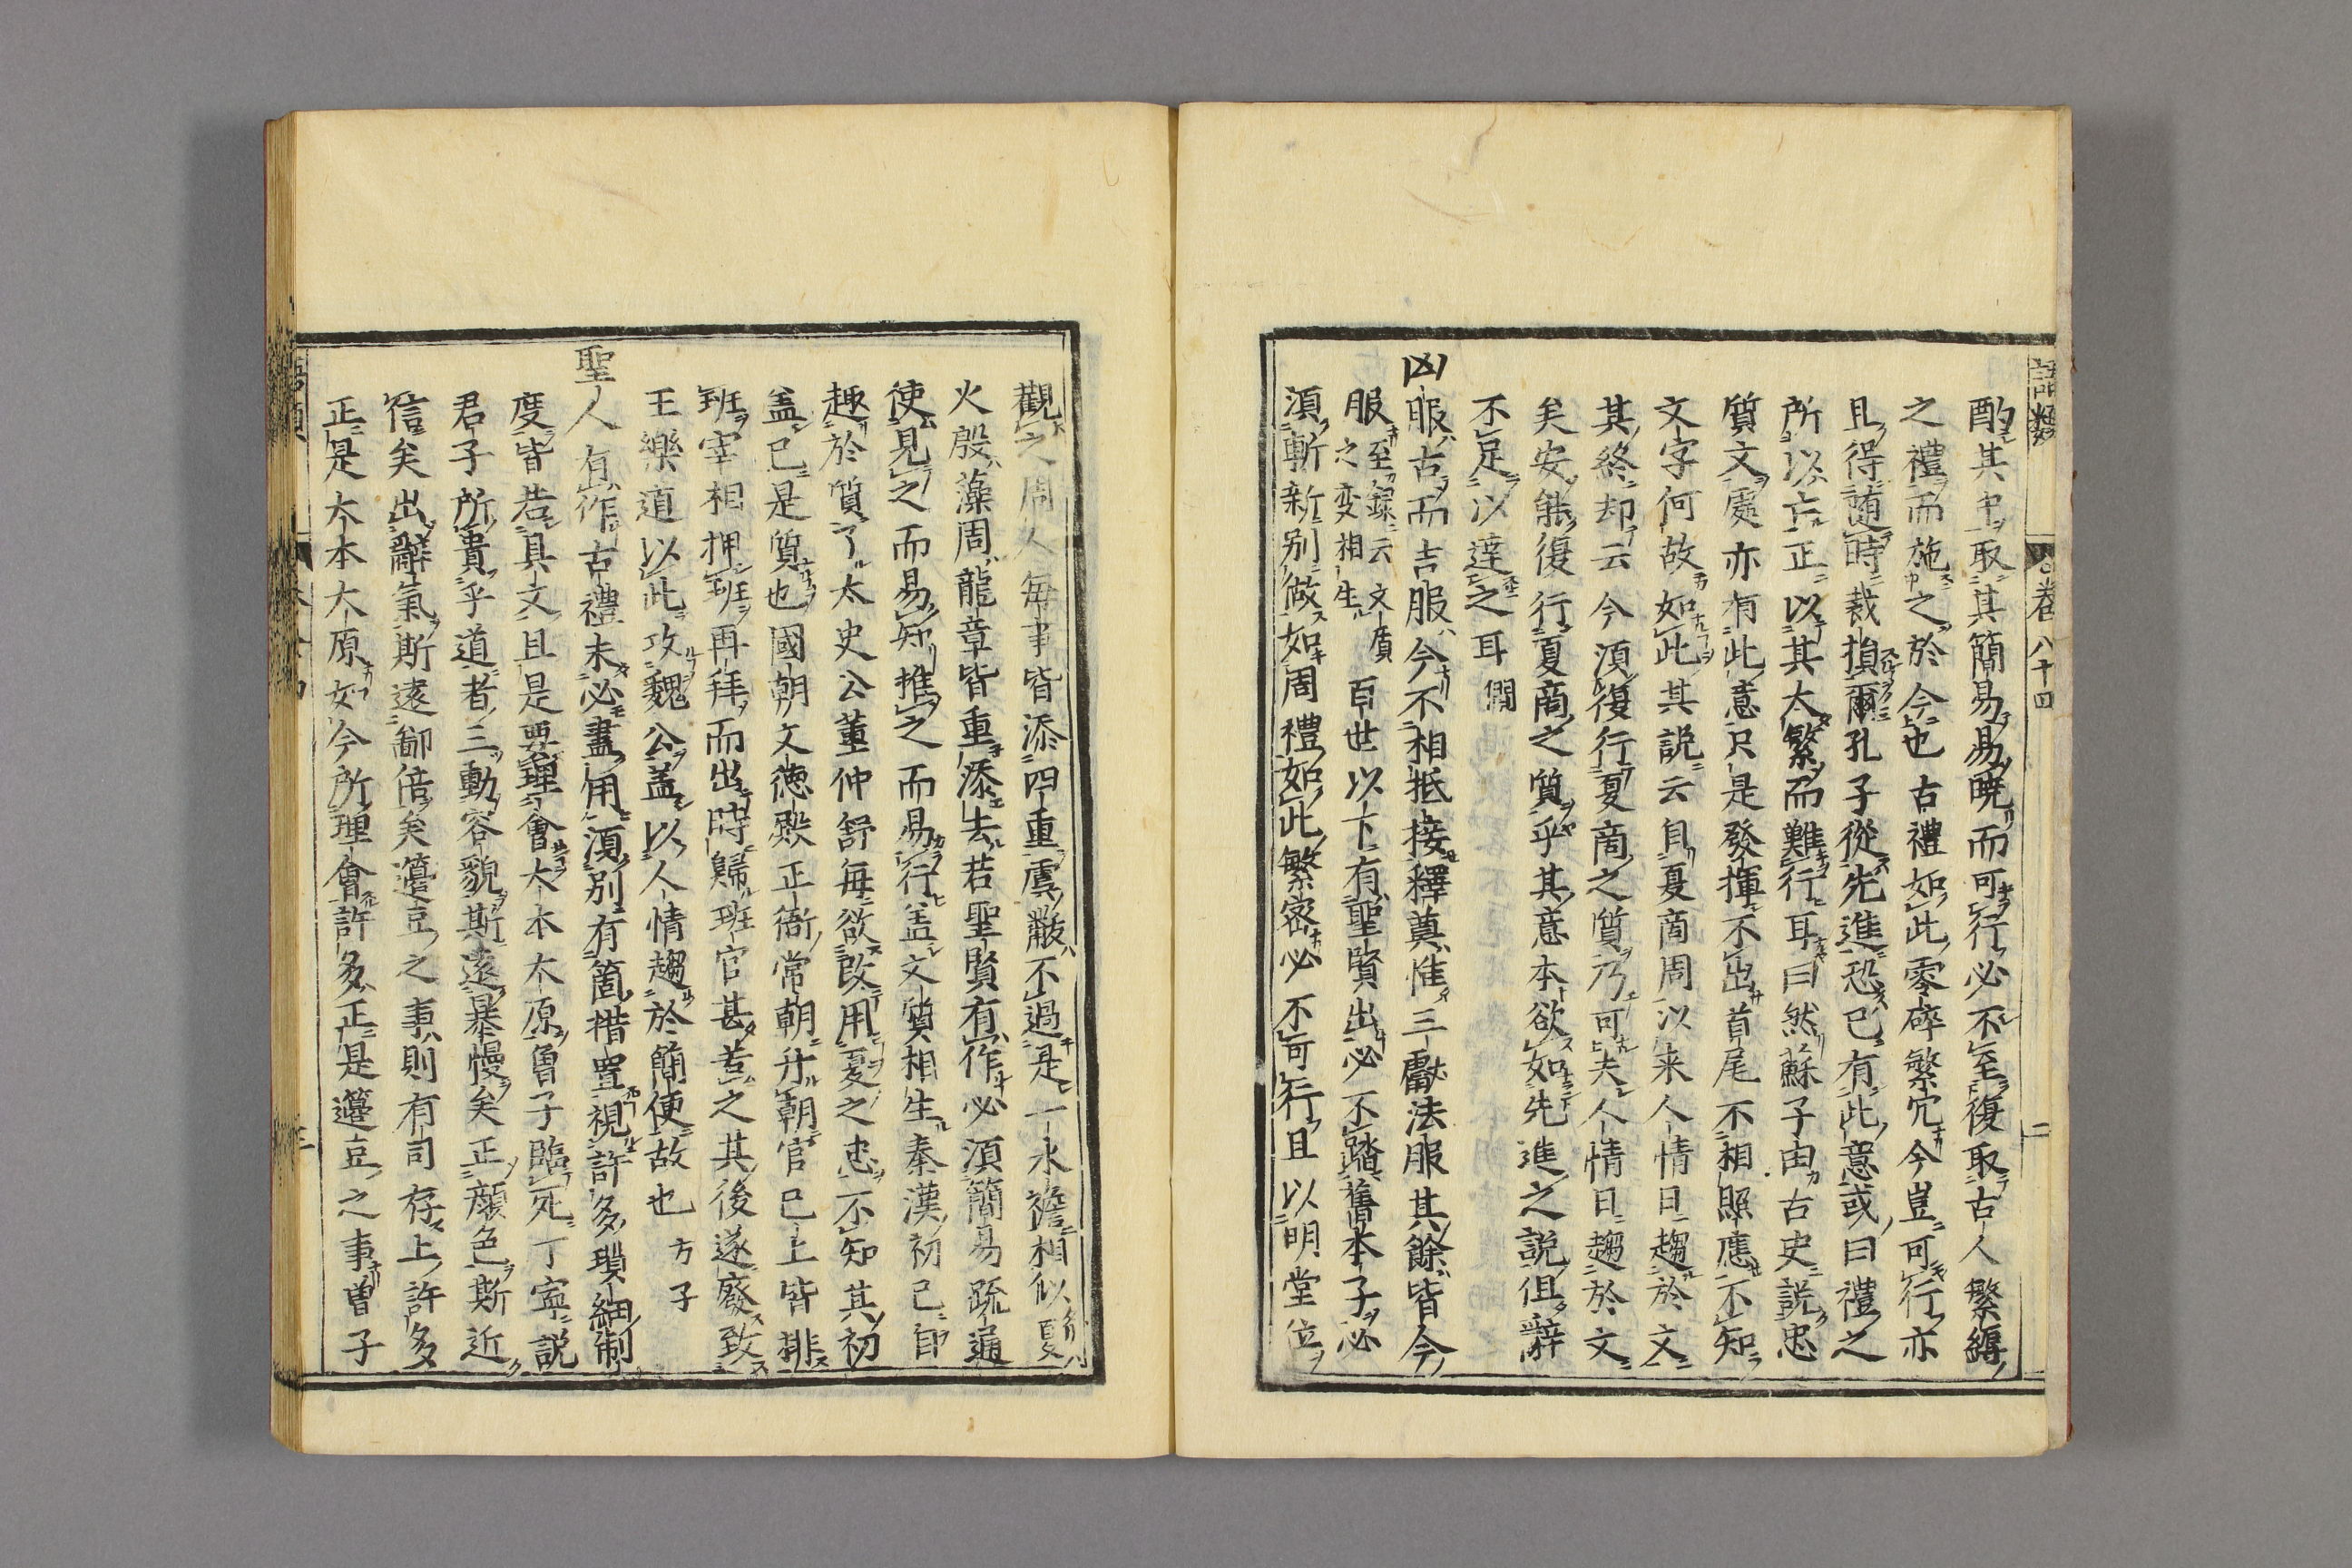 語類 卷八十四 二
酌其中取其簡易易曉而可行必不至復取古人繁縟
之禮而施之於今也古禮如此零碎繁冗今豈可行亦
且得隨時裁損爾孔子從先進恐已有此意或曰禮之
所以亡正以其太繁而難行耳曰然蘇子由古史說忠
質文處亦有此意只是發揮不出首尾不相照應不知
文字何故如此其說云自夏商周以来人情日趨於文
其終却云今須復行夏商之質乃可夫人情日趨於文
矣安能復行夏商之質乎其意本欲如先進之說但辭
不足以達之耳僩
凶服古而吉服今不相抵接釋奠惟三獻法服其餘皆今
服至錄云文質之変相生百世以下有聖賢出必不踏舊本子必
須斬新别做如周禮如此繁密必不可行且以明堂位
觀之周人每事皆添四重虞黻不過是一水擔相似夏
火殷藻周龍章皆重添去若聖賢有作必須簡易疏通
使見之而易知推之而易行盖文質相生秦漢初已自
趣於質了太史公董仲舒每欲改用夏之忠不知其初
盖已是質也國朝文徳殿正衙常朝升朝官已上皆排
班宰相押班再拜而出時歸班官甚苦之其後遂廢致
王樂道以此攻魏公盖以人情趨於簡便故也方子
聖人有作古禮未必盡用須别有箇措置視許多瑣細制
度皆若具文且是要理會大本大原曾子臨死丁寧說
君子所貴乎道者三動容貌斯遠暴慢矣正顔色斯近
信矣出辭氣斯遠鄙倍矣籩豆之事則有司存上許多
正是大本大原如今所理會許多正是籩豆之事曽子